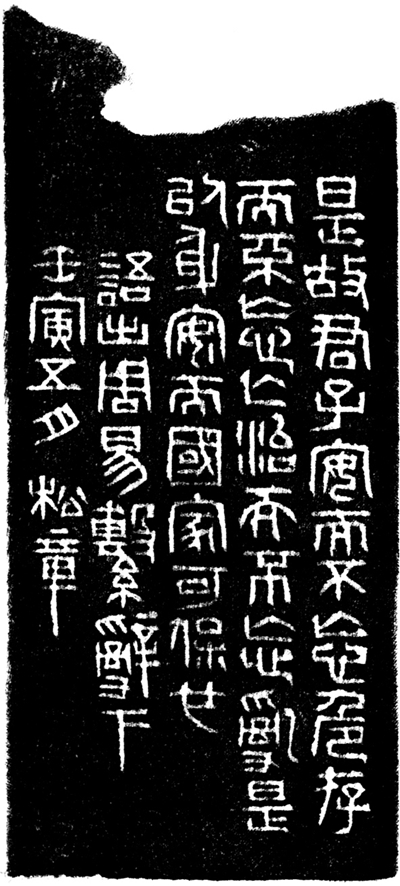 是故君子安而不忘危存
而不忘亡治而不忘亂是
以身安而國家可保也
語出周易繫辭下
壬寅五月 松章